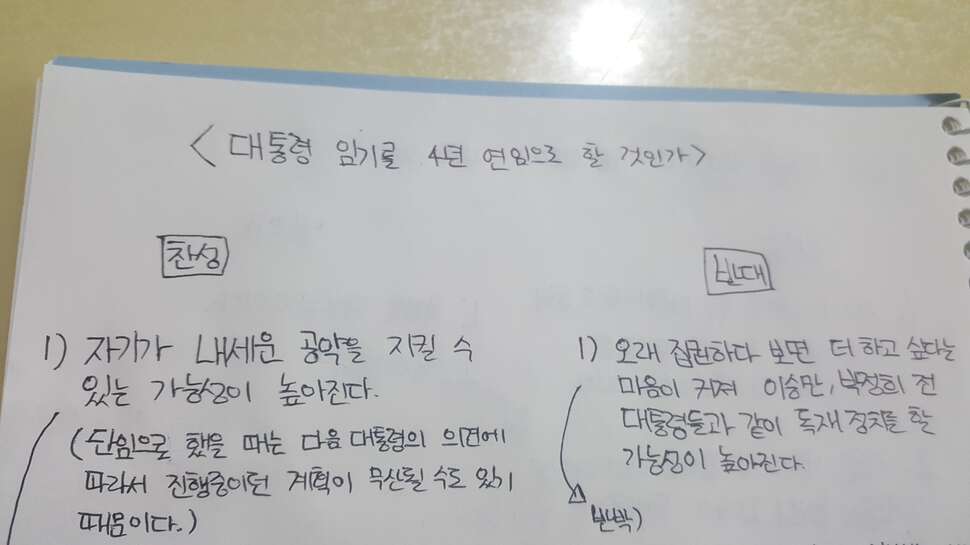 <대통령 임기를 4년 연임으로 할 것인가>
찬성
1) 자기가 내세운 공약을 지킬 수
있는 가능성이 높아진다.
(단임으로 했을 때는 다음 대통령의 의견에
따라서 진행중이던 계획이 무산될 수도 있기
때문이다.)
반대
1) 오래 집권하다 보면 더 하고 싶다는
마음이 커져 이승만, 박정희 전
대통령들과 같이 독재 정치를 할
가능성이 높아진다.
반박)